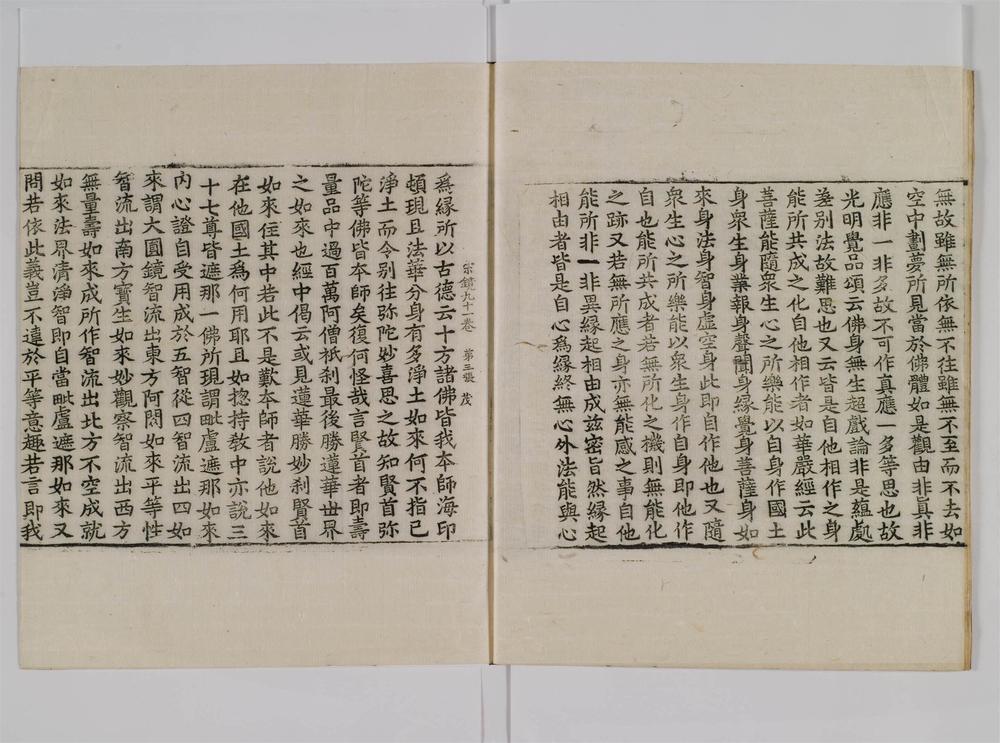 無故雖無所依無不往雖無不至而不去如
空中劃夢所見當於佛體如是觀由非眞非
應非一非多故不可作真應一多等思也故
光明覺品頌云佛身無生超戲論非是蘊處
差别法故難思也又云皆是自他相作之身
能所共成之化自他相作者如華嚴經云此
菩薩能隨衆生心之所樂能以自身作國土
身衆生身業報身聲聞身緣覺身菩薩身如
來身法身智身虛空身此即自作他也又隨
衆生心之所樂能以衆生身作自身即他作
自也能所共成者若無所化之機則無能化
之跡又若無所應之身亦無能感之事自他
能所非一非異緣起相由成兹密旨然緣起
相由者皆是自心爲緣終無心外法能與心
宗鏡九十一卷 第三張 茂
爲緣所以古德云十方諸佛皆我本師海印
頓現且法華分身有多淨土如來何不指已
淨土而令别往弥陀妙喜思之故知賢首弥
陀等佛皆本師矣復何怪哉言賢首者即壽
量品中過百萬阿僧祇刹最後勝蓮華世界
之如來也經中偈云或見蓮華勝妙刹賢首
如來住其中若此不是歎本師者說他如來
在他國土爲何用耶且如揔持教中亦說三
十七尊皆遮那一佛所現謂毗盧遮那如來
內心證自受用成於五智從四智流出四如
來謂大圓鏡智流出東方阿閦如來平等性
智流出南方寶生如來妙觀察智流出西方
無量壽如來成所作智流出北方不空成就
如來法界清淨智即自當毗盧遮那如來又
問若依此義豈不違於平等意趣若言即我